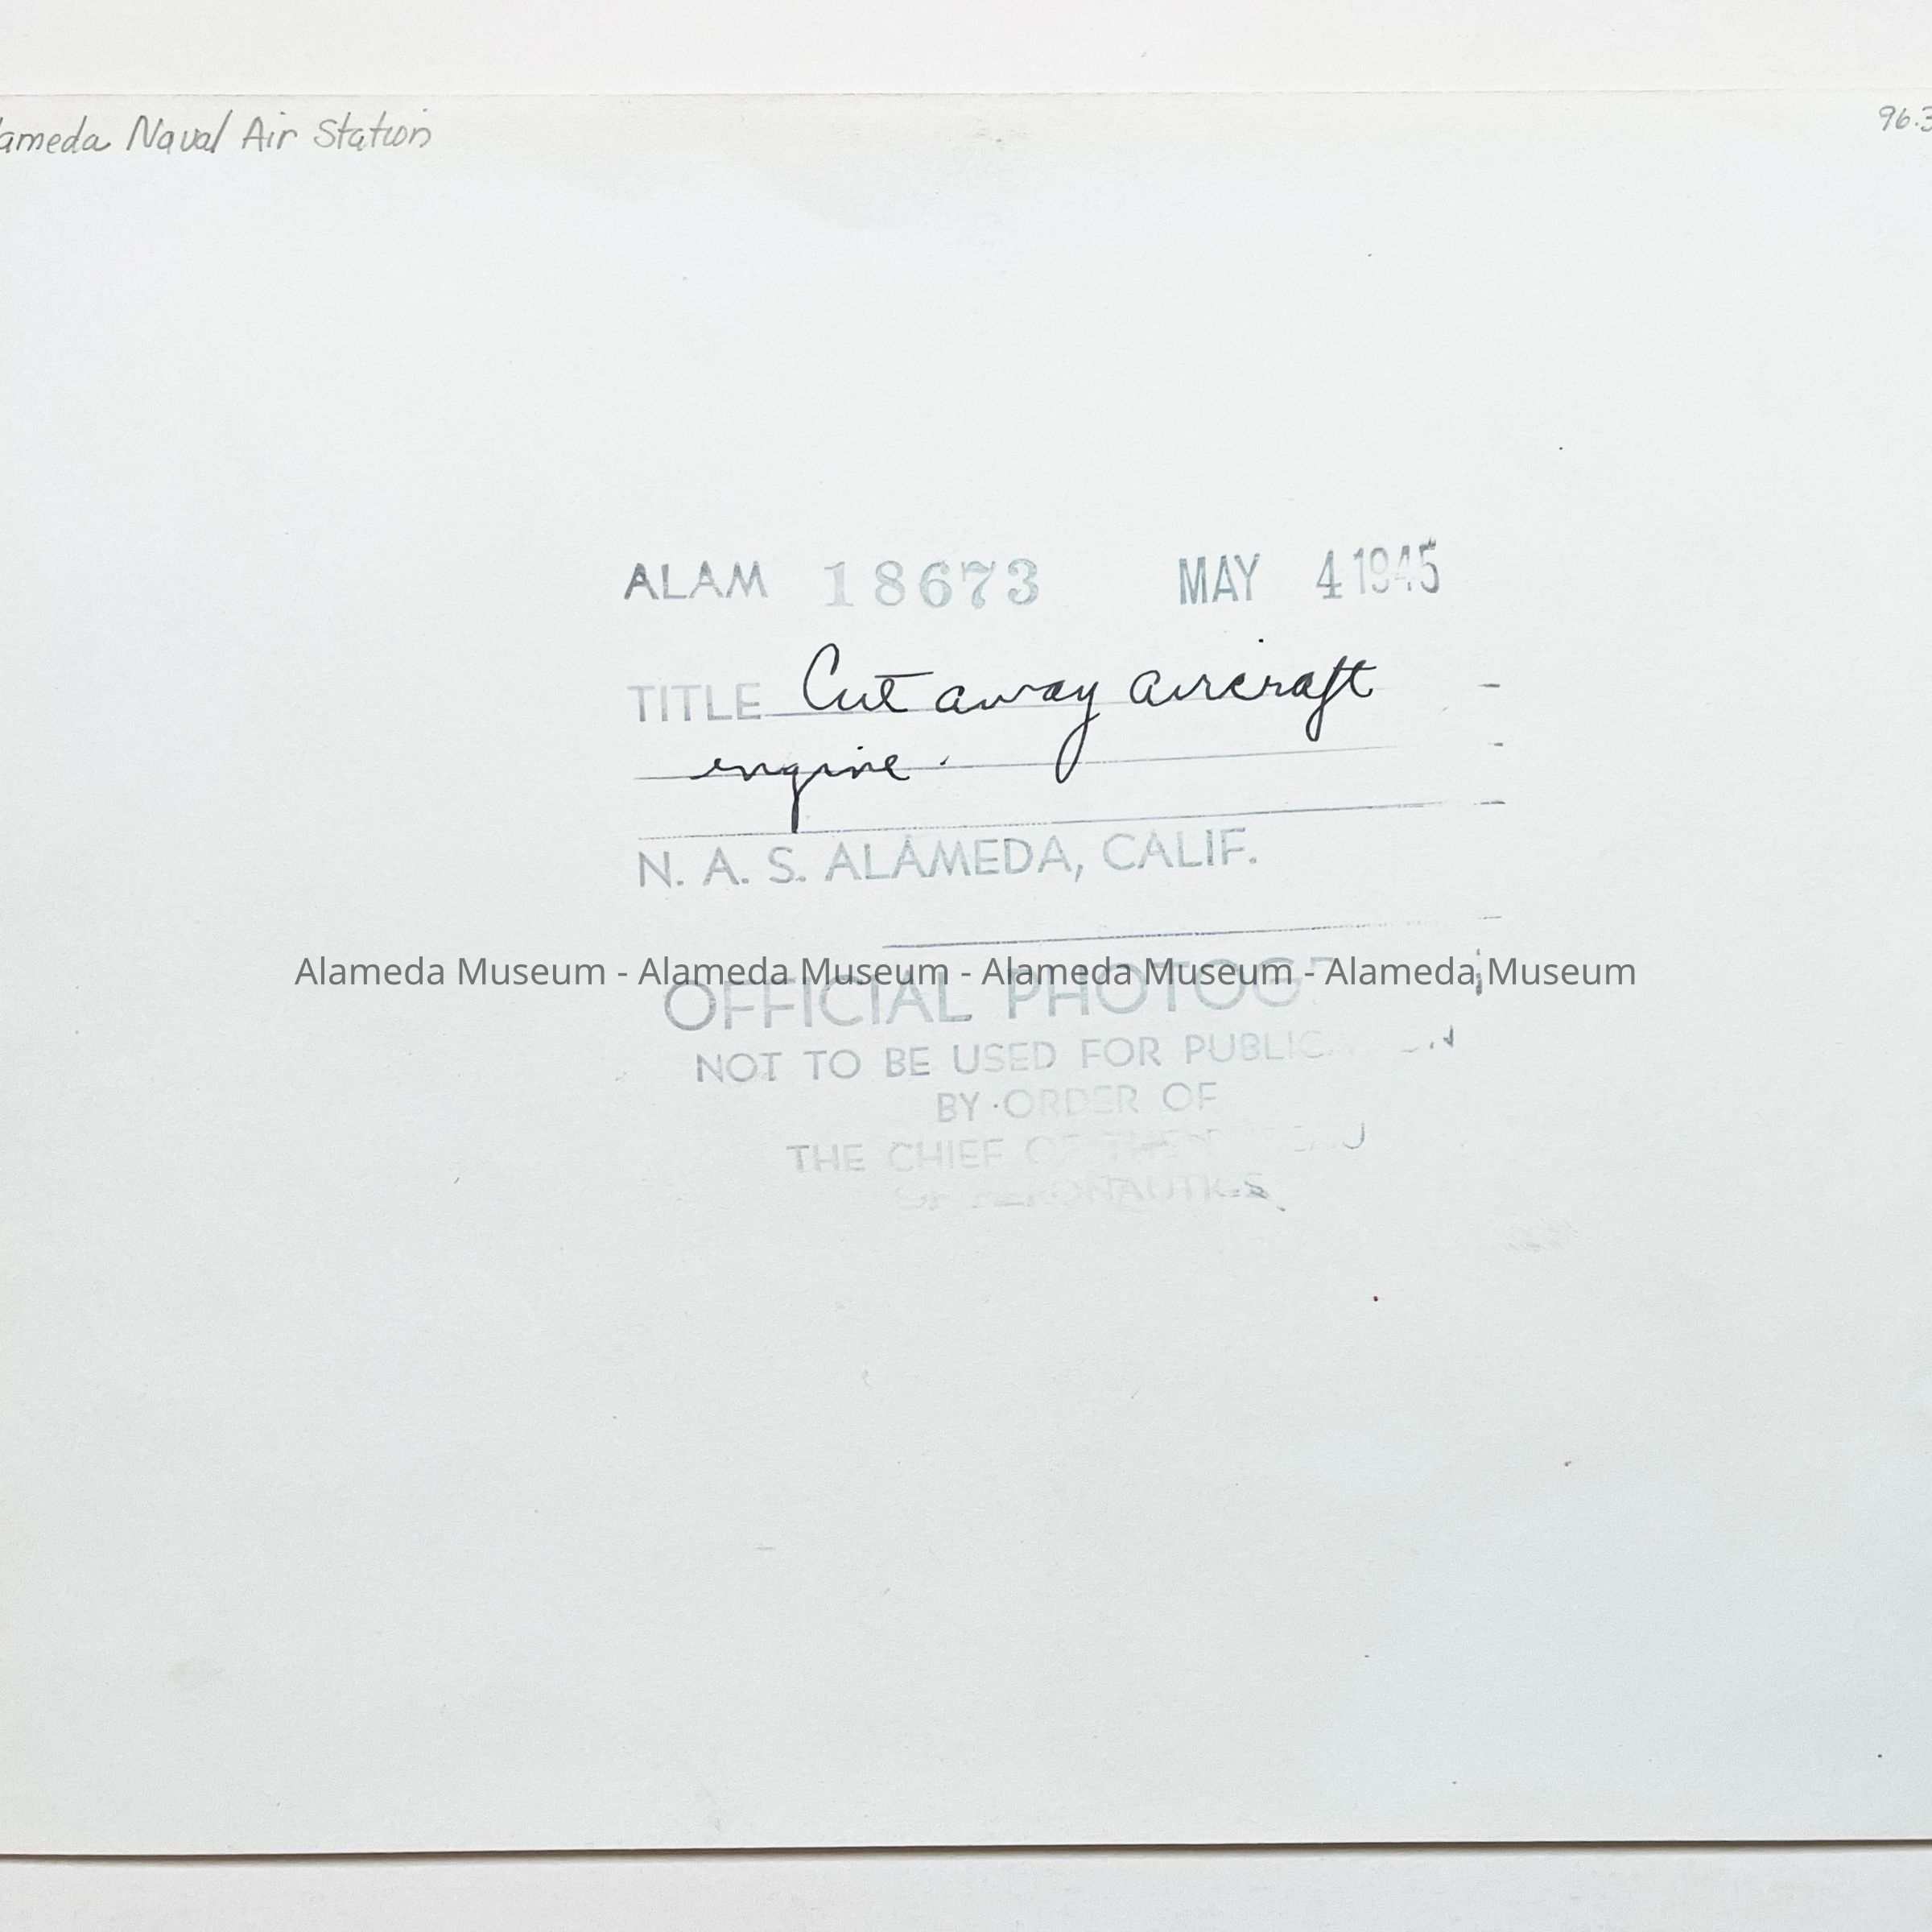 lameda Naval Air Station
96.3
ALAM 18673 MAY 4 1945
TITLE Cut away aircraft
engine.
N. A. S. ALAMEDA, CALIF.
Alameda Museum - Alameda Museum - Alameda Museum - Alameda Museum
OFFICIAL PHOTOG
NOT TO BE USED FOR PUBLIC
BY ORDER OF
THE CHIEF OF THE
OF AERONAUTICS